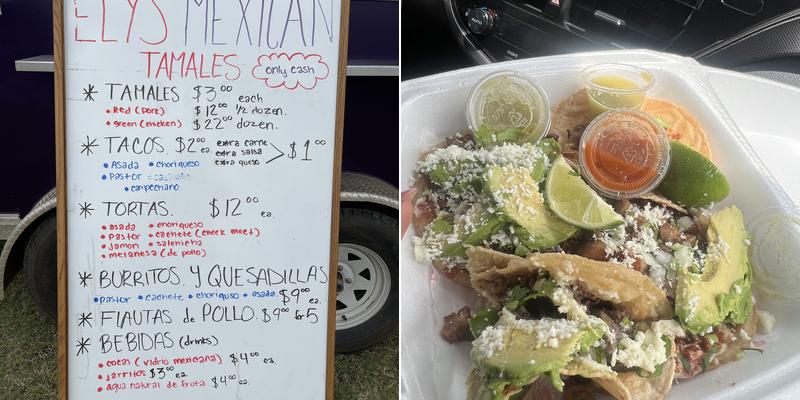 ELYS MEXICAN
TAMALES only cash
* TAMALES $3⁰⁰ each
• Red (Pork) $12⁰⁰ 1/2 dozen.
• green (chicken) $22⁰⁰ dozen.
* TACOS. $2⁰⁰ ea. extra carne
extra salsa > $1⁰⁰
extra queso
• Asada • choriqueso
• Pastor
• campechano
* TORTAS. $12⁰⁰ ea.
• asada • choriqueso
• Pastor • cachete (cheek meet)
• Jamon • salchicha
• melanesa (de pollo)
* BURRITOS. Y QUESADILLAS
• pastor • cachete • choriquso • asada. $9⁰⁰ ea.
* FlAUTAS de POLLO. $9⁰⁰ for 5
* BEBIDAS (drinks)
• cocas (vidrio mexicana) $4⁰⁰ ea.
• jarritos $3⁰⁰ ea
• agua natural de fruta $4⁰⁰ ea.